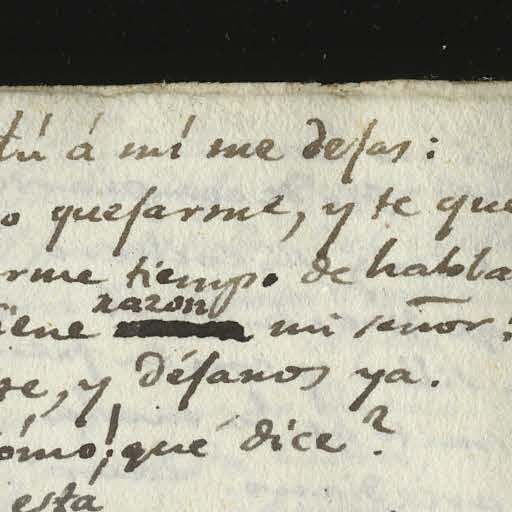 tú á mí me dejas:
o quejarme, y te que
rme tiempo de habla
razon
iene mi señor:
te, y déjanos ya.
ómo! qué dice?
esta